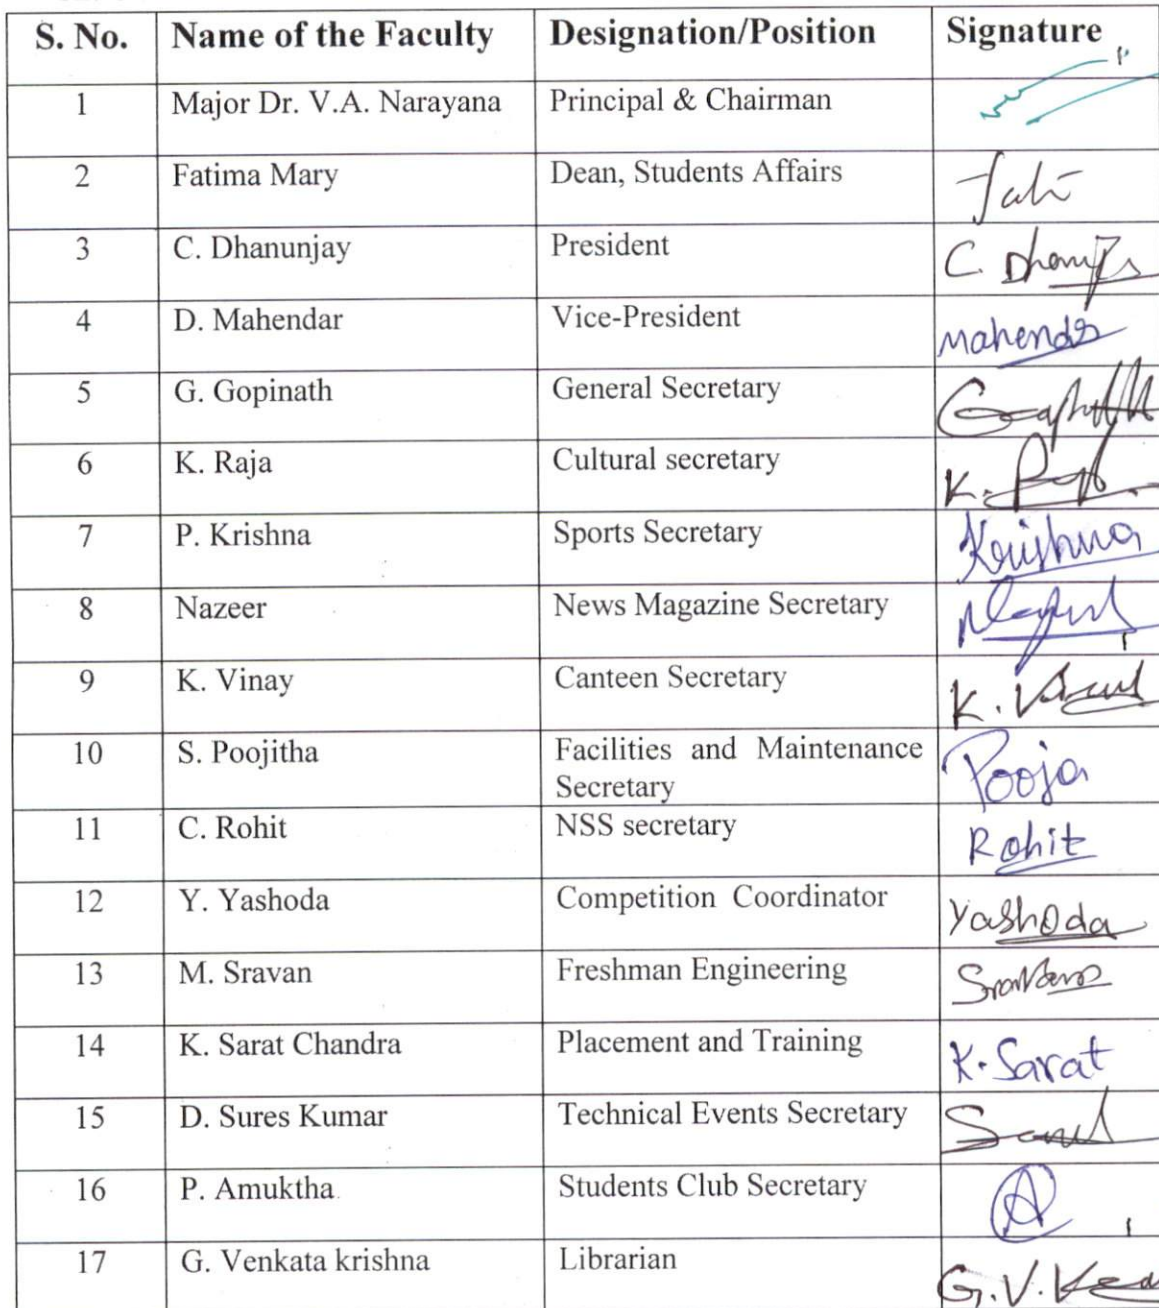 S. No. Name of the Faculty Designation/Position Signature
1 Major Dr. V.A. Narayana Principal & Chairman
2 Fatima Mary Dean, Students Affairs
3 C. Dhanunjay President C.
4 D. Mahendar Vice-President
5 G. Gopinath General Secretary
6 K. Raja Cultural secretary K.
7 P. Krishna Sports Secretary Krishna
8 Nazeer News Magazine Secretary
9 K. Vinay Canteen Secretary K.
10 S. Poojitha Facilities and Maintenance Pooja
Secretary
11 C. Rohit NSS secretary Rohit
12 Y. Yashoda Competition Coordinator Yashoda
13 M. Sravan Freshman Engineering
14 K. Sarat Chandra Placement and Training K. Sarat
15 D. Sures Kumar Technical Events Secretary
16 P. Amuktha Students Club Secretary A
17 G. Venkata krishna Librarian G.V.